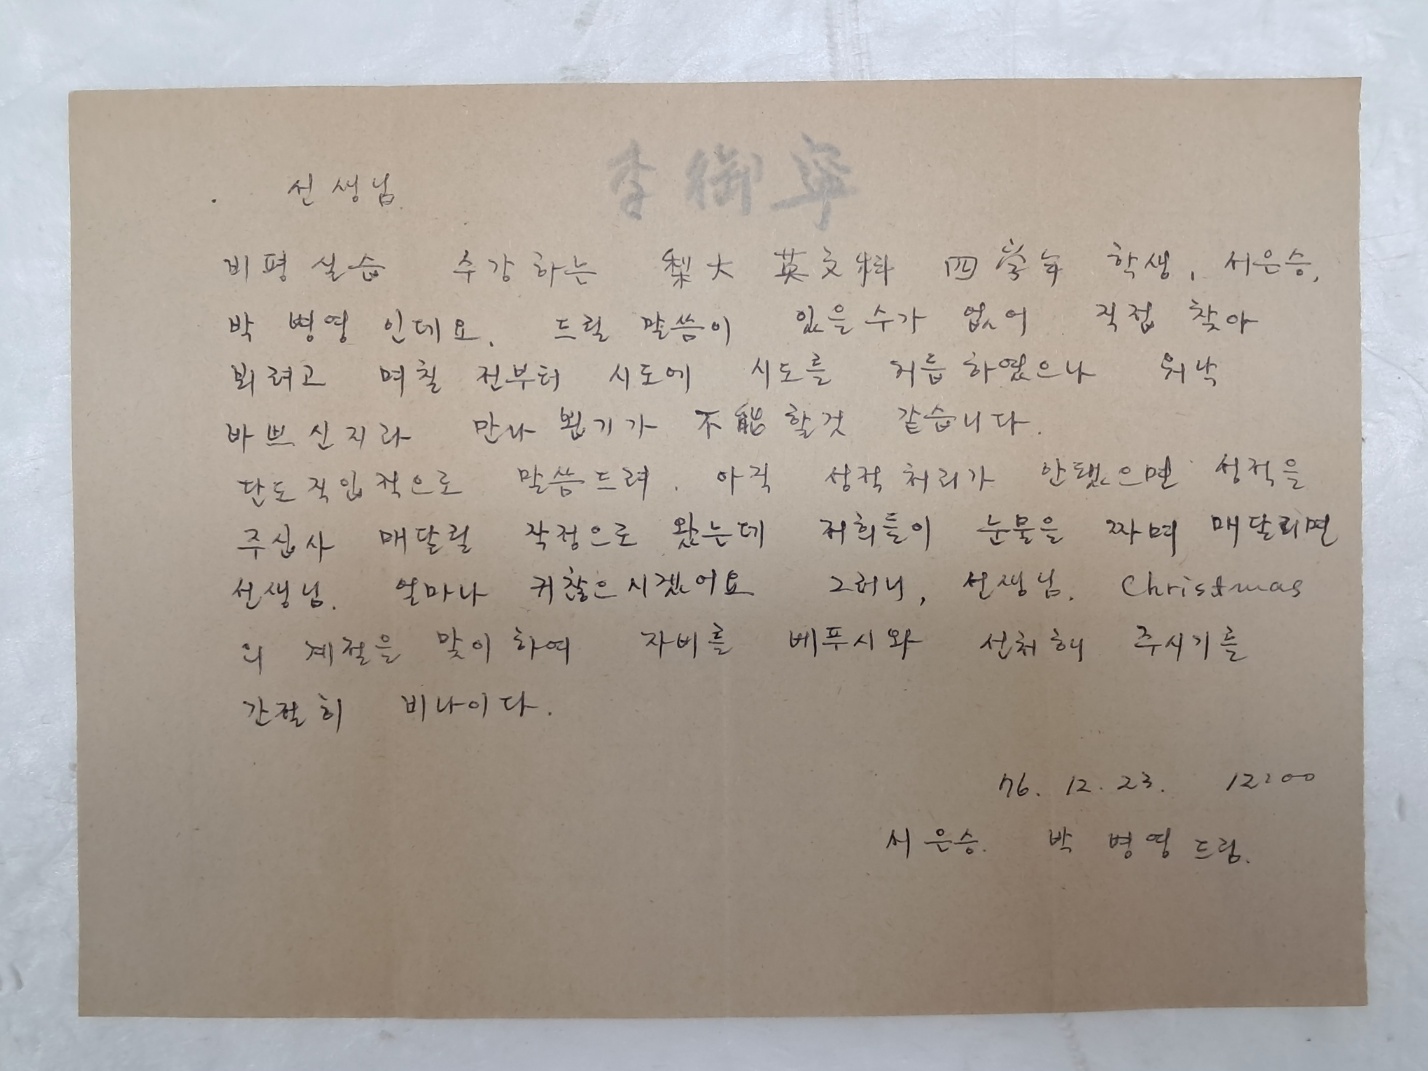 李御寧
선생님.
비평실습 수강하는 梨大 英文科 四學年 학생, 서은승,
박 병영 인데요. 드릴 말씀이 있을수가 없어 직접 찾아
뵈려고 며칠 전부터 시도에 시도를 거듭하였으나 워낙
바쁘신지라 만나 뵙기가 不能할것 같습니다.
단도직입적으로 말씀드려. 아직 성적처리가 안됐으면 성적을
주십사 매달릴 작정으로 왔는데 저희들이 눈물을 짜며 매달리면
선생님. 얼마나 귀찮으시겠어요 그러니, 선생님. Christmas
의 계절을 맞이하여 자비를 베푸시와 선처해 주시기를
간절히 비나이다.
76. 12. 23. 12:00
서은승. 박 병영 드림.